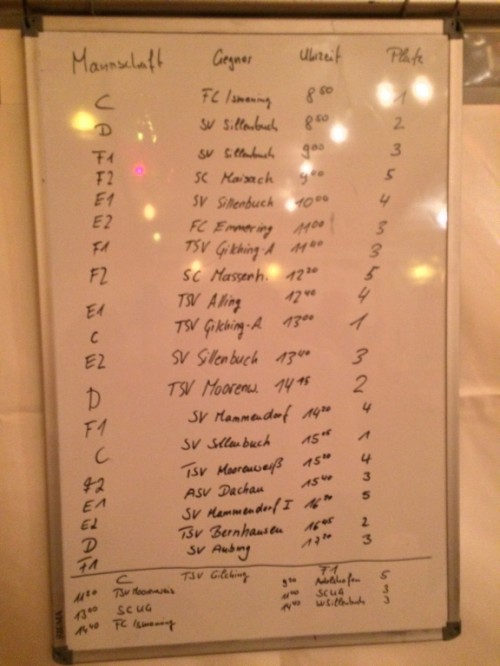 Mannschaft Gegner Uhrzeit Platz
C FC Ismaning 8⁵⁰ 1
D SV Sillenbuch 8⁵⁰ 2
F1 SV Sillenbuch 9⁰⁰ 3
F2 SC Maisach 9⁰⁰ 5
E1 SV Sillenbuch 10⁰⁰ 4
E2 FC Emmering 11⁰⁰ 3
F1 TSV Gilching-A 11⁴⁰ 3
F2 SC Massenh. 12²⁰ 5
E1 TSV Alling 12⁴⁰ 4
C TSV Gilching-A. 13⁰⁰ 1
E2 SV Sillenbuch 13⁴⁰ 3
D TSV Moorenw. 14¹⁵ 2
F1 SV Mammendorf 14²⁰ 4
C SV Sillenbuch 15⁰⁵ 1
F2 TSV Moorenweiß 15²⁰ 4
E1 ASV Dachau 15⁴⁰ 3
E2 SV Mammendorf I 16²⁰ 5
D TSV Bernhausen 16⁴⁵ 2
F1 SV Aubing 17²⁰ 3
C TSV Gilching F1
11²⁰ 9²⁰ 5
13⁰⁰ SCUG 11⁰⁰ SCUG 3
14⁴⁰ FC Ismaning 14⁴⁰ WSillenbuch 3